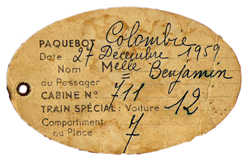 PAQUEBOT Colombie
Date 27 Décembre 1959
Nom Melle Benjamin
du Passager
CABINE N° 711
TRAIN SPÉCIAL: Voiture 12
Compartiment
ou Place 7